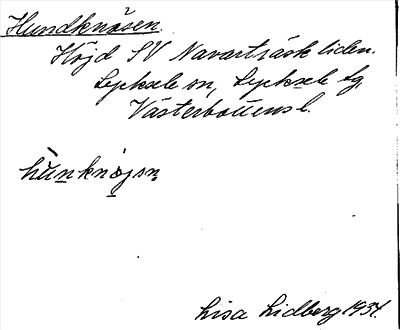 Hundknösen.
Höjd SV Navarträskliden.
Lycksele sn, Lycksele lg,
Västerbottens l.
hùnknøjsn̥
Lisa Lidberg 1934.